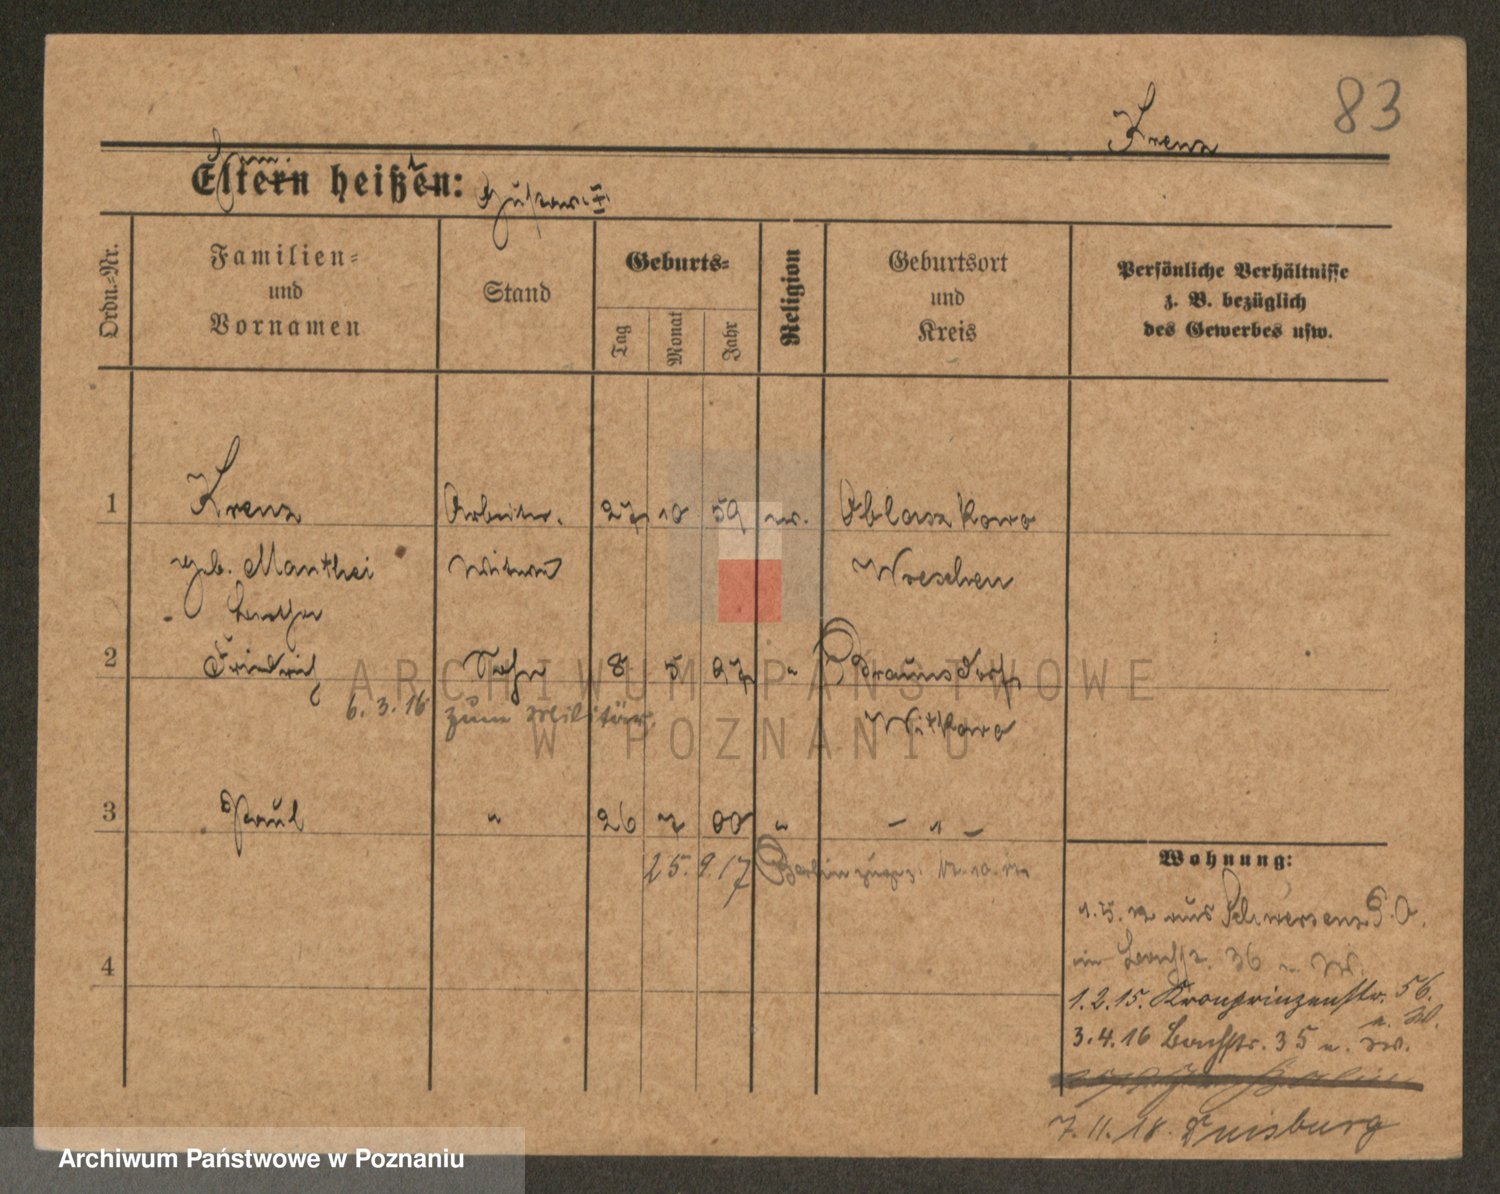 83
Krenz
Eltern heißen: Gustav. II
Ordn.-Nr.
Familien-
und
Vornamen
Stand
Geburts-
Tag
Monat
Jahr
Religion
Geburtsort
und
Kreis
Persönliche Verhältnisse
z. B. bezüglich
des Gewerbes usw.
1 Krenz Arbeiter. 27 10 59 ev. Oblaszkowo
geb. Manthei Witwe Wreschen
2 Friedrich Sohn 8 5 97 " Braunsdorf
6.3.16 zum Militär. Witkowo
3 Paul " 26 00 " — " —
25.9.17 Berlin
4
Wohnung:
aus Schwersenz
36
1.2.15. Kronprinzenstr. 56.
3.4.16 Bachstr. 35
7.11.18. Duisburg
ARCHIWUM PAŃSTWOWE
W POZNANIU
Archiwum Państwowe w Poznaniu